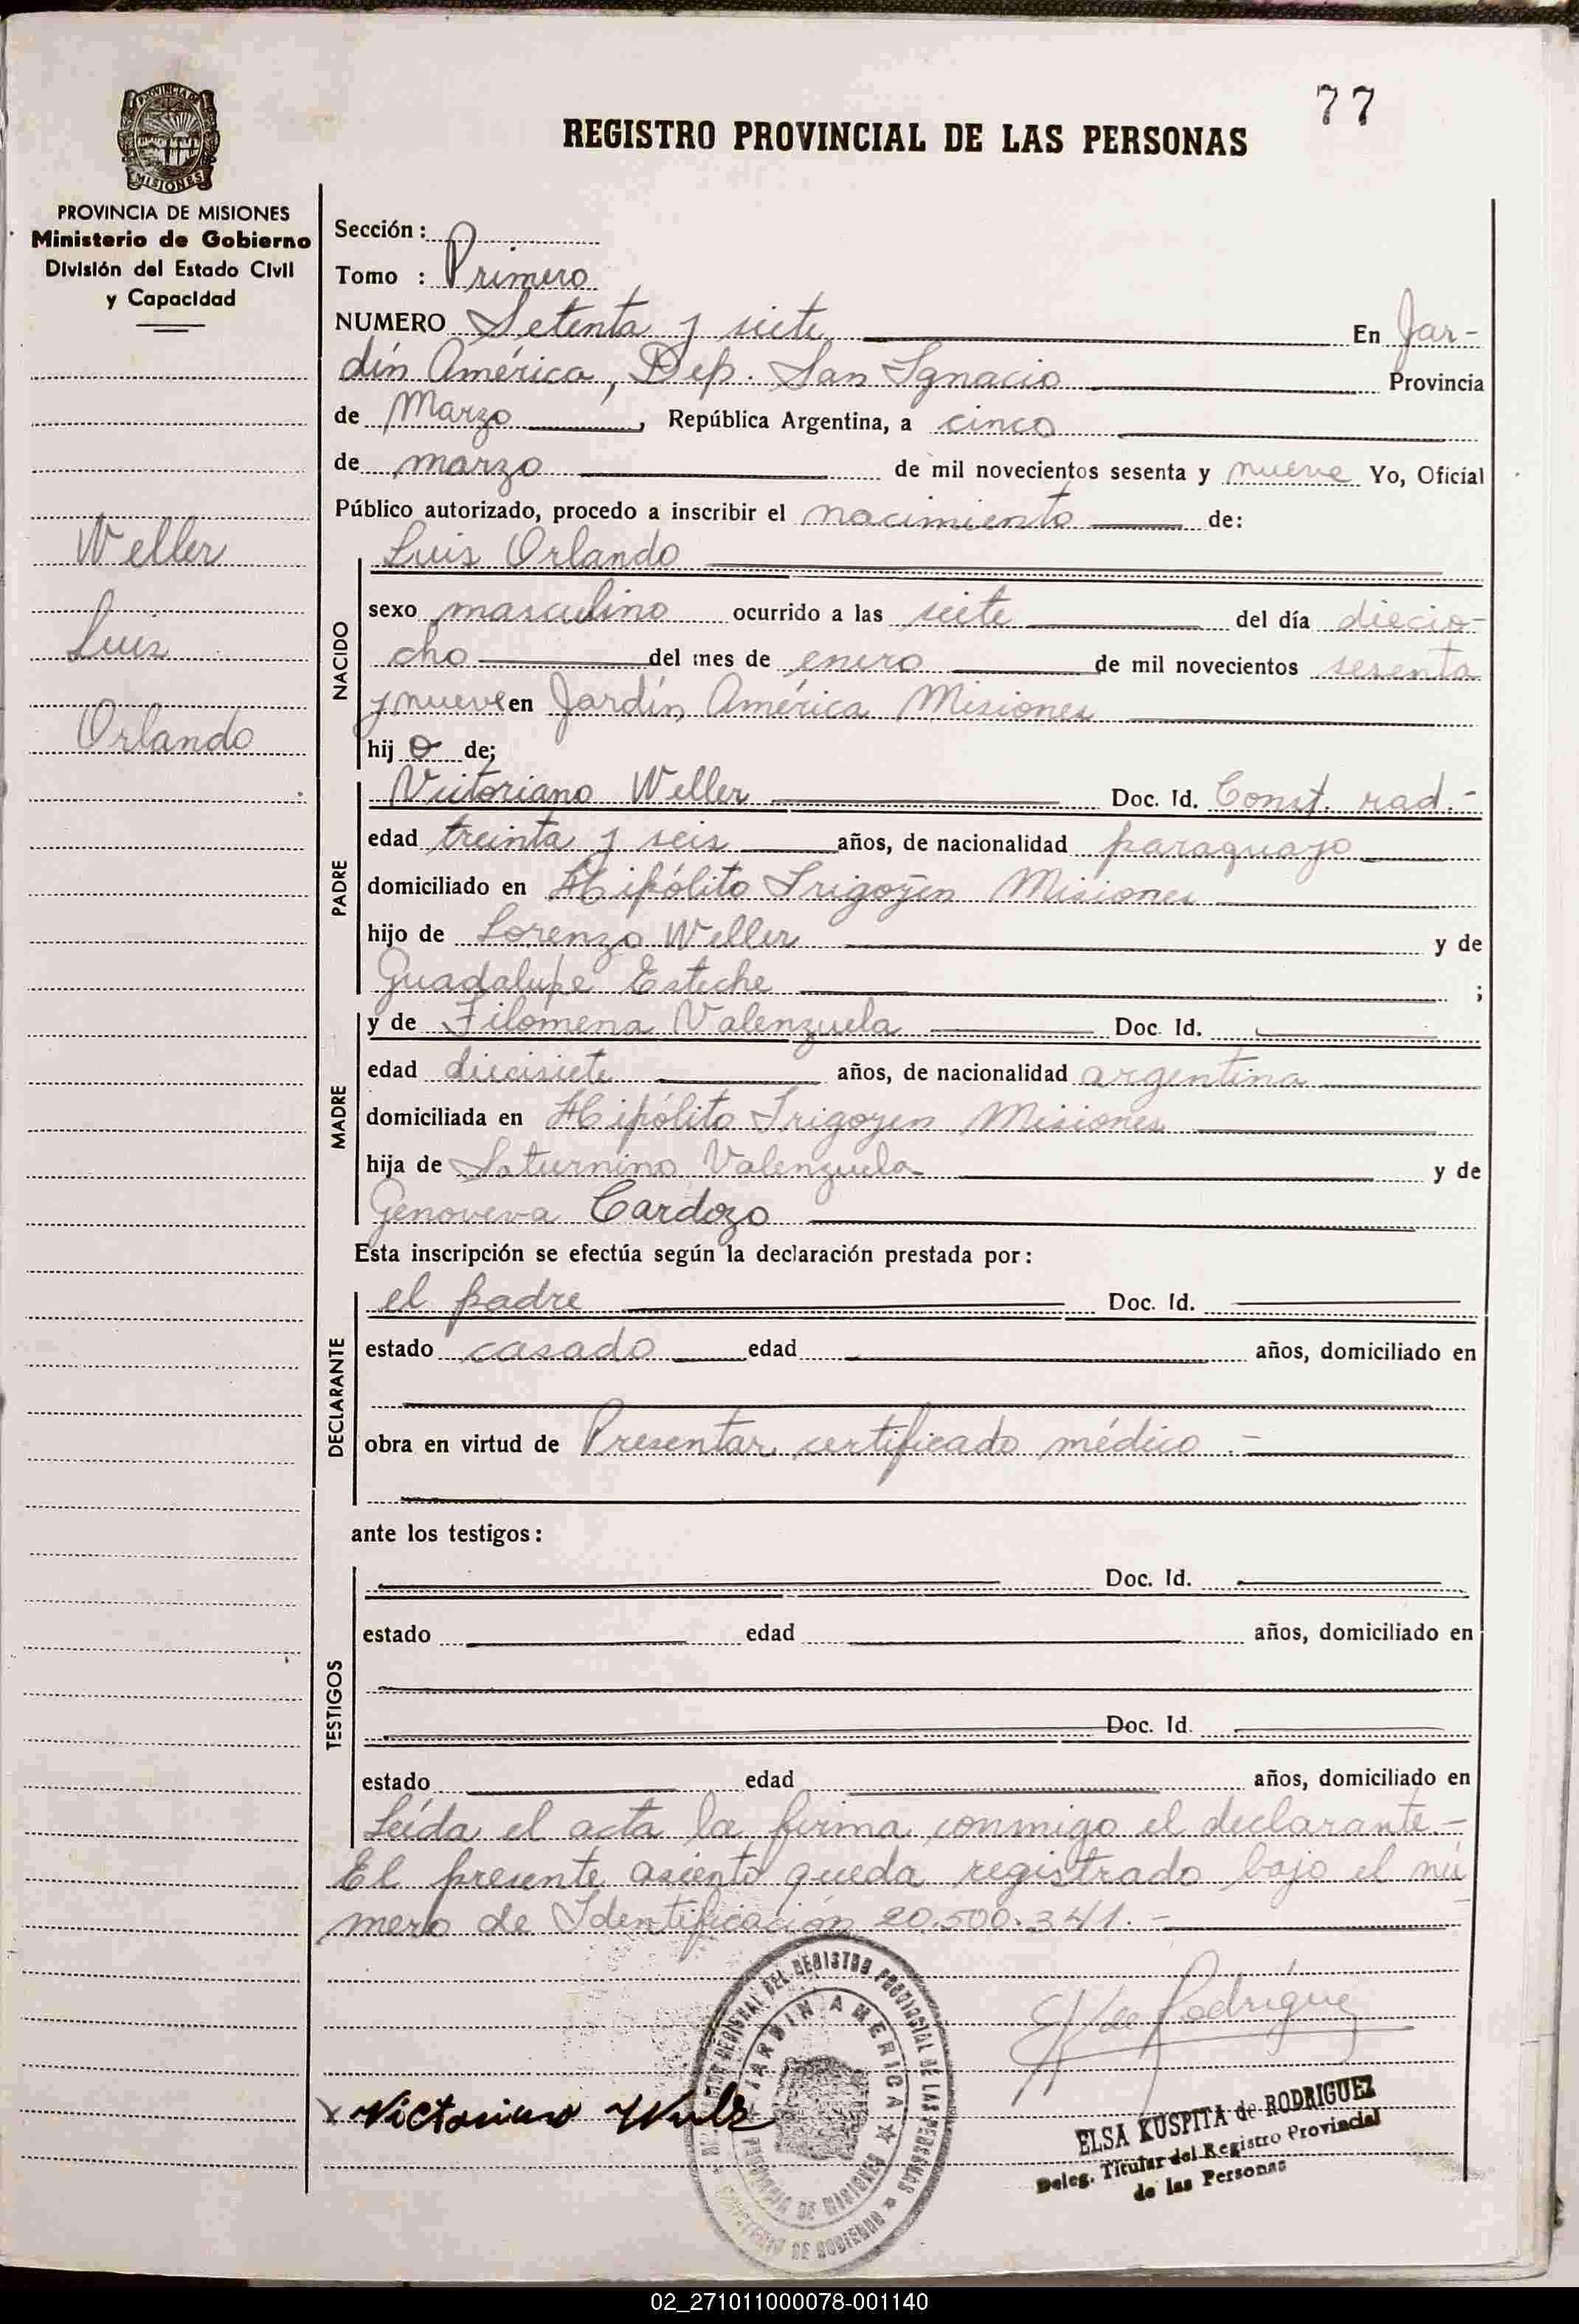 77
REGISTRO PROVINCIAL DE LAS PERSONAS
PROVINCIA DE MISIONES
Ministerio de Gobierno
División del Estado Civil
y Capacidad
Weller
Luis
Orlando
Sección :
Tomo : Primero
NUMERO Setenta y siete En Jar-
dín América, Dep. San Ignacio Provincia
de Marzo, República Argentina, a cinco
de marzo de mil novecientos sesenta y nueve Yo, Oficial
Público autorizado, procedo a inscribir el nacimiento de:
NACIDO
Luis Orlando
sexo masculino ocurrido a las siete del día diecio-
cho del mes de enero de mil novecientos sesenta
y nueve en Jardín América Misiones
hij o de;
PADRE
Victoriano Weller Doc. Id. Const. rad.-
edad treinta y seis años, de nacionalidad paraguayo
domiciliado en Hipólito Irigoyen Misiones
hijo de Lorenzo Weller y de
Guadalupe Esteche ;
MADRE
y de Filomena Valenzuela Doc. Id.
edad diecisiete años, de nacionalidad argentina
domiciliada en Hipólito Irigoyen Misiones
hija de Saturnino Valenzuela y de
Genoveva Cardozo
Esta inscripción se efectúa según la declaración prestada por:
DECLARANTE
el padre Doc. Id.
estado casado edad años, domiciliado en
obra en virtud de Presentar certificado médico.-
ante los testigos:
TESTIGOS
Doc. Id.
estado edad años, domiciliado en
Doc. Id.
estado edad años, domiciliado en
Leída el acta la firma conmigo el declarante.-
El presente asiento queda registrado bajo el nú
mero de Identificación 20.500.341.-
DEL REGISTRO PROVINCIAL DE LAS PERSONAS
JARDIN AMERICA
PROVINCIA DE MISIONES
MINISTERIO DE GOBIERNO
de Rodríguez
Victoriano
ELSA KUSPITA de RODRIGUEZ
Deleg. Titular del Registro Provincial
de las Personas
02_271011000078-001140